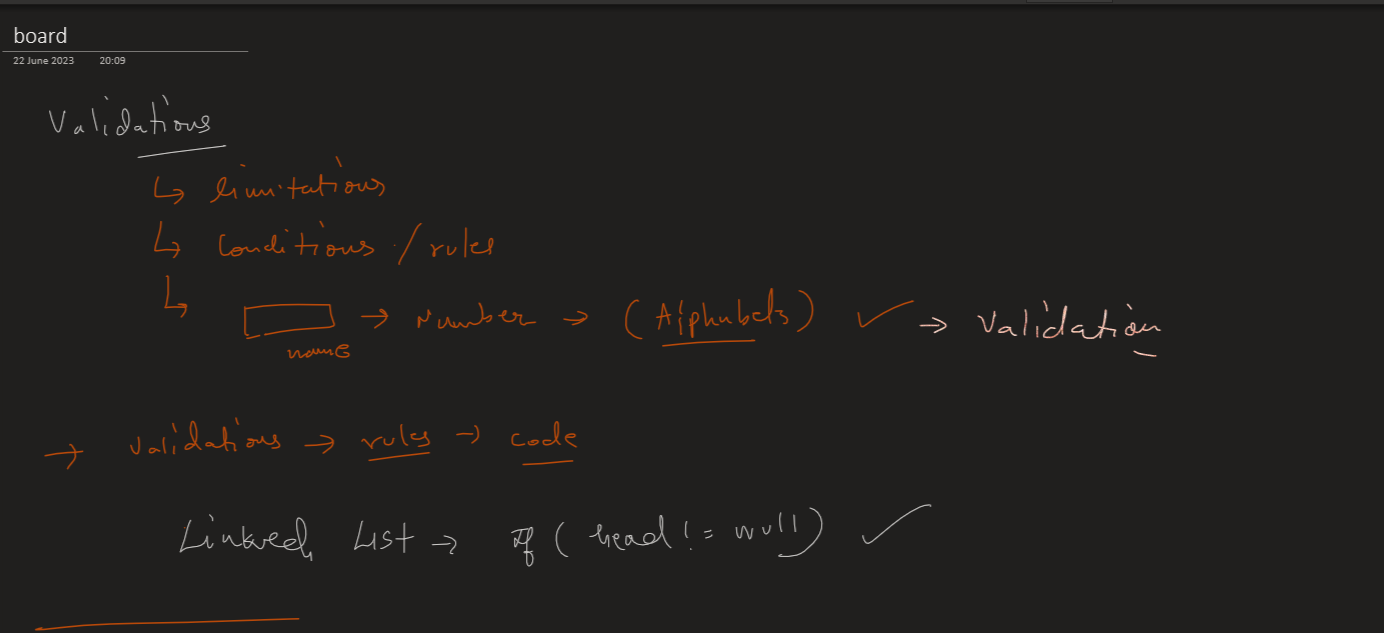 board
22 June 2023 20:09
Validations
↳ limitations
↳ Conditions / rules
↳ → Number → (Alphabets) ✓ → Validation
name
→ Validations → rules → code
Linked List → if (head != null) ✓